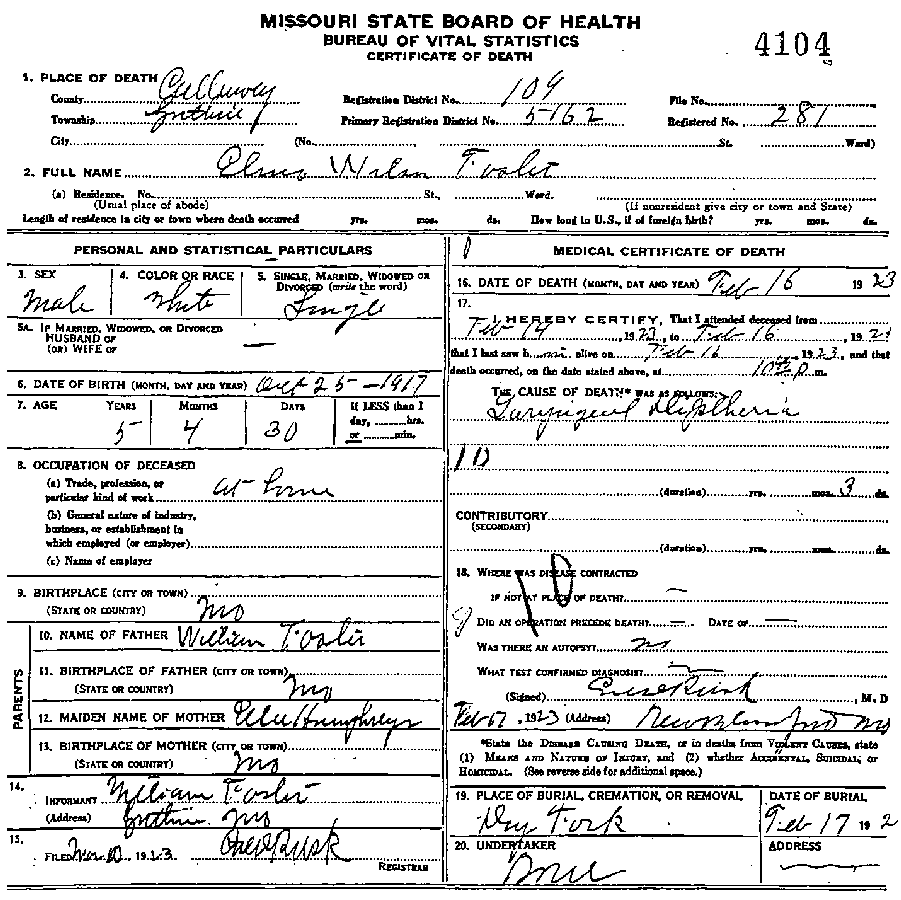 MISSOURI STATE BOARD OF HEALTH
BUREAU OF VITAL STATISTICS
CERTIFICATE OF DEATH
4104
1. PLACE OF DEATH
County Callaway Registration District No. 109 File No.
Township Guthrie Primary Registration District No. 5162 Registered No. 281
City (No. St. Ward)
2. FULL NAME Foster
(a) Residence. No. St., Ward.
(Usual place of abode) (If nonresident give city or town and State)
Length of residence in city or town where death occurred yrs. mos. ds. How long in U.S., if of foreign birth? yrs. mos. ds.
PERSONAL AND STATISTICAL PARTICULARS
3. SEX Male
4. COLOR OR RACE White
5. SINGLE, MARRIED, WIDOWED OR DIVORCED (write the word) Single
5A. IF MARRIED, WIDOWED, OR DIVORCED
HUSBAND OF
(OR) WIFE OF —
6. DATE OF BIRTH (MONTH, DAY AND YEAR) Oct 25 - 1917
7. AGE YEARS MONTHS DAYS If LESS than 1
day, hrs.
or min.
5 4 30
8. OCCUPATION OF DECEASED
(a) Trade, profession, or
particular kind of work at home
(b) General nature of industry,
business, or establishment in
which employed (or employer)
(c) Name of employer
9. BIRTHPLACE (CITY OR TOWN)
(STATE OR COUNTRY) Mo
PARENTS
10. NAME OF FATHER William Foster
11. BIRTHPLACE OF FATHER (CITY OR TOWN)
(STATE OR COUNTRY) Mo
12. MAIDEN NAME OF MOTHER Humphreys
13. BIRTHPLACE OF MOTHER (CITY OR TOWN)
(STATE OR COUNTRY) Mo
14.
INFORMANT William Foster
(Address) Guthrie Mo
15.
FILED 1923 Rusk
REGISTRAR
MEDICAL CERTIFICATE OF DEATH
16. DATE OF DEATH (MONTH, DAY AND YEAR) Feb 16 1923
17.
I HEREBY CERTIFY, That I attended deceased from
Feb 14, 1923, to Feb 16, 192
that I last saw him alive on Feb 16, 1923, and that
death occurred, on the date stated above, at 10 P m.
THE CAUSE OF DEATH* WAS AS FOLLOWS:
Laryngeal Diphtheria
10
(duration) yrs. mos. 3 ds.
CONTRIBUTORY
(SECONDARY)
(duration) yrs. mos. ds.
18. WHERE WAS DISEASE CONTRACTED
IF NOT AT PLACE OF DEATH? —
10
9 DID AN OPERATION PRECEDE DEATH? — DATE OF —
WAS THERE AN AUTOPSY? no
WHAT TEST CONFIRMED DIAGNOSIS? —
(Signed) Rusk, M. D
Feb 17, 1923 (Address) New Bloomfield Mo
*State the DISEASE CAUSING DEATH, or in deaths from VIOLENT CAUSES, state
(1) MEANS AND NATURE OF INJURY, and (2) whether ACCIDENTAL, SUICIDAL, or
HOMICIDAL. (See reverse side for additional space.)
19. PLACE OF BURIAL, CREMATION, OR REMOVAL DATE OF BURIAL
Dry Fork Feb 17 192
20. UNDERTAKER ADDRESS